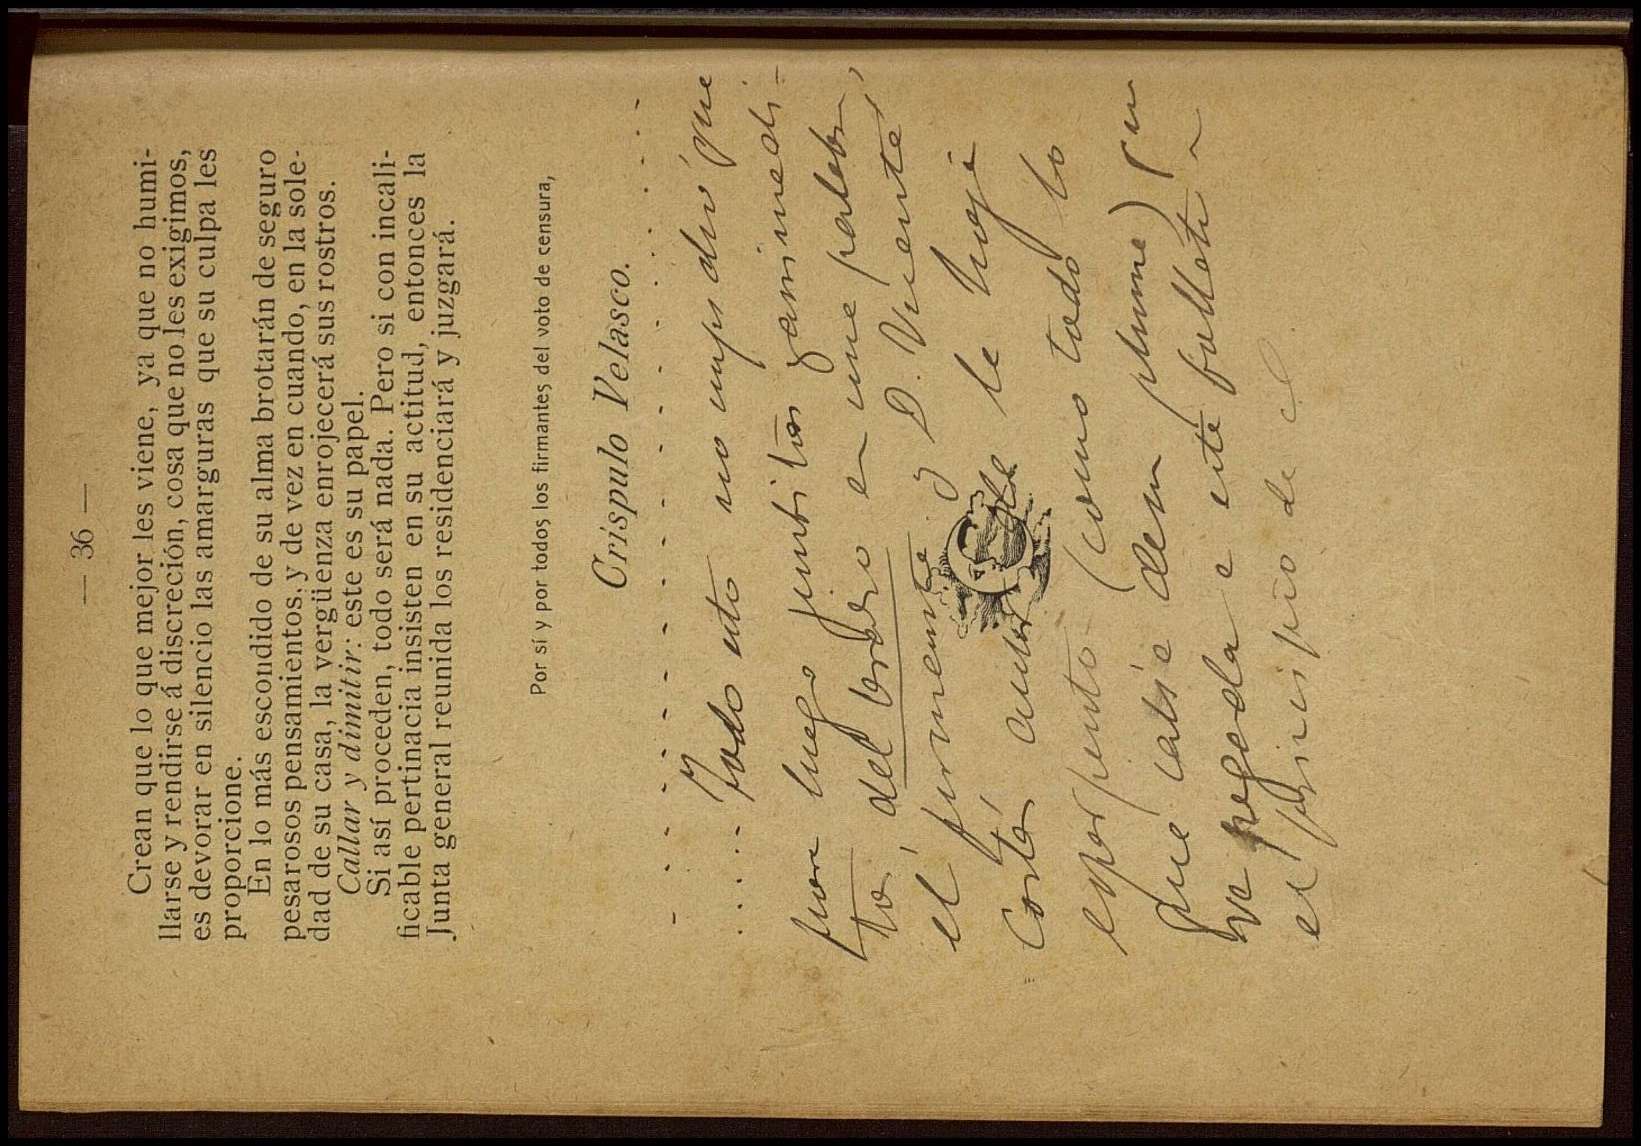 — 36 —
Crean que lo que mejor les viene, ya que no humi-
llarse y rendirse á discreción, cosa que no les exigimos,
es devorar en silencio las amarguras que su culpa les
proporcione.
En lo más escondido de su alma brotarán de seguro
pesarosos pensamientos, y de vez en cuando, en la sole-
dad de su casa, la vergüenza enrojecerá sus rostros.
Callar y dimitir: este es su papel.
Si así proceden, todo será nada. Pero si con incali-
ficable pertinacia insisten en su actitud, entonces la
Junta general reunida los residenciará y juzgará.
Por sí y por todos los firmantes del voto de censura,
Crispulo Velasco.
Todo esto no impidió que
luego juntitos
to, del brazo en una palabra,
el y D. Vicente
autor de la hoja
esperpento (como todo lo
que sale de su pluma) que
va pegada a este folleto
el principio de el